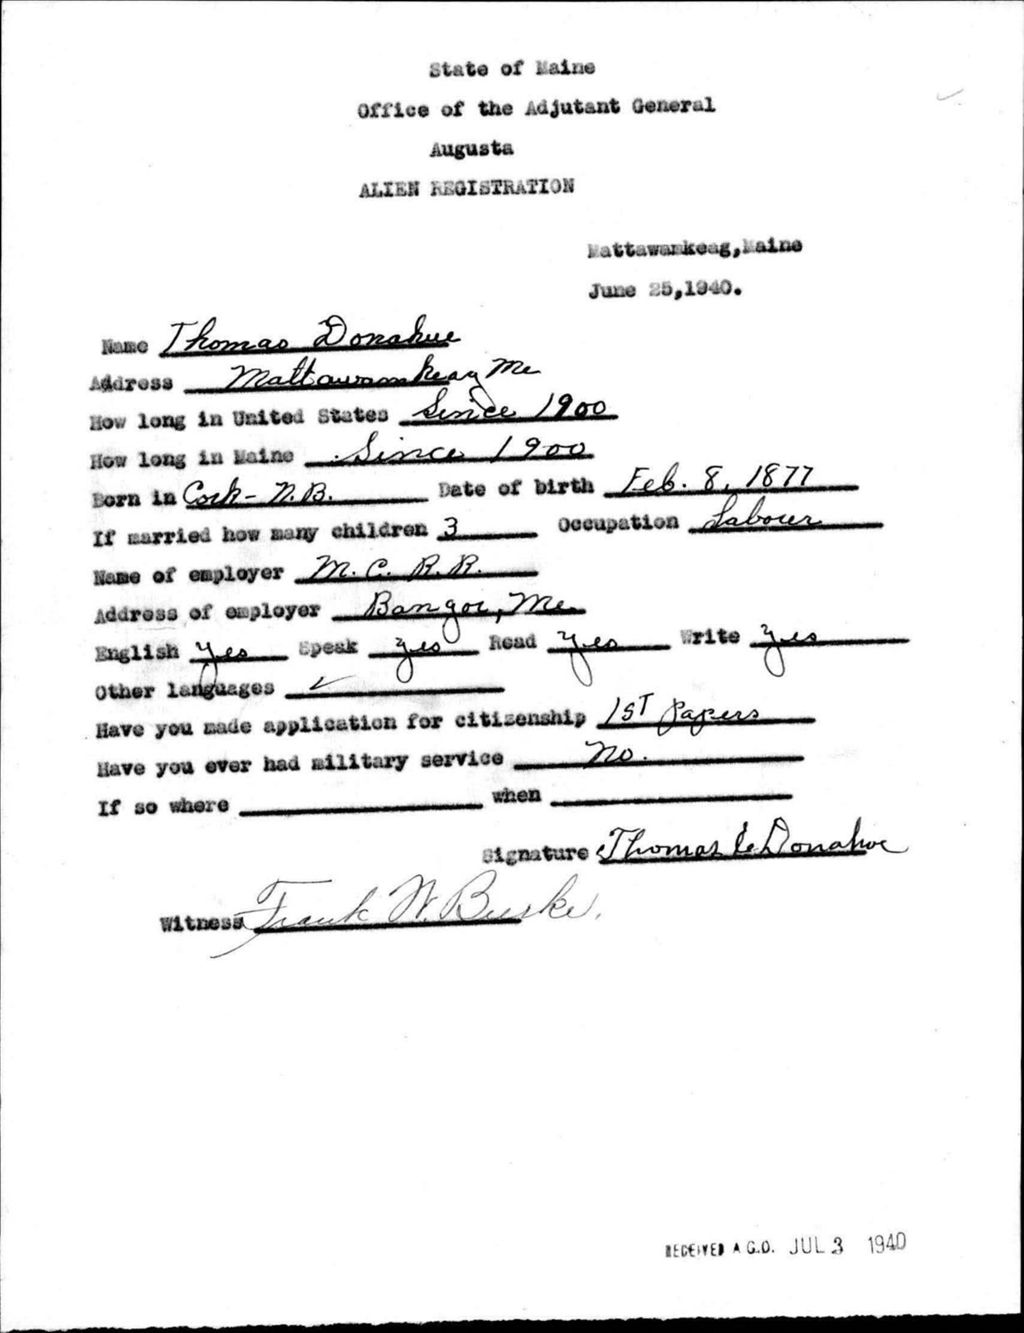 State of Maine
Office of the Adjutant General
Augusta
ALIEN REGISTRATION
Mattawamkeag, Maine
June 25, 1940.
Name Thomas Donahue
Address Mattawamkeag Me
How long in United States Since 1900
How long in Maine Since 1900
Born in Cork - N.B. Date of birth Feb. 8, 1877
If married how many children 3 Occupation Labourer
Name of employer M. C. R. R.
Address of employer Bangor, Me.
English Yes Speak yes Read yes Write yes
Other languages ✓
Have you made application for citizenship 1ST Papers
Have you ever had military service No.
If so where when
Signature Thomas Donahue
Witness Frank W. Burke.
RECEIVED A.G.O. JUL 3 1940